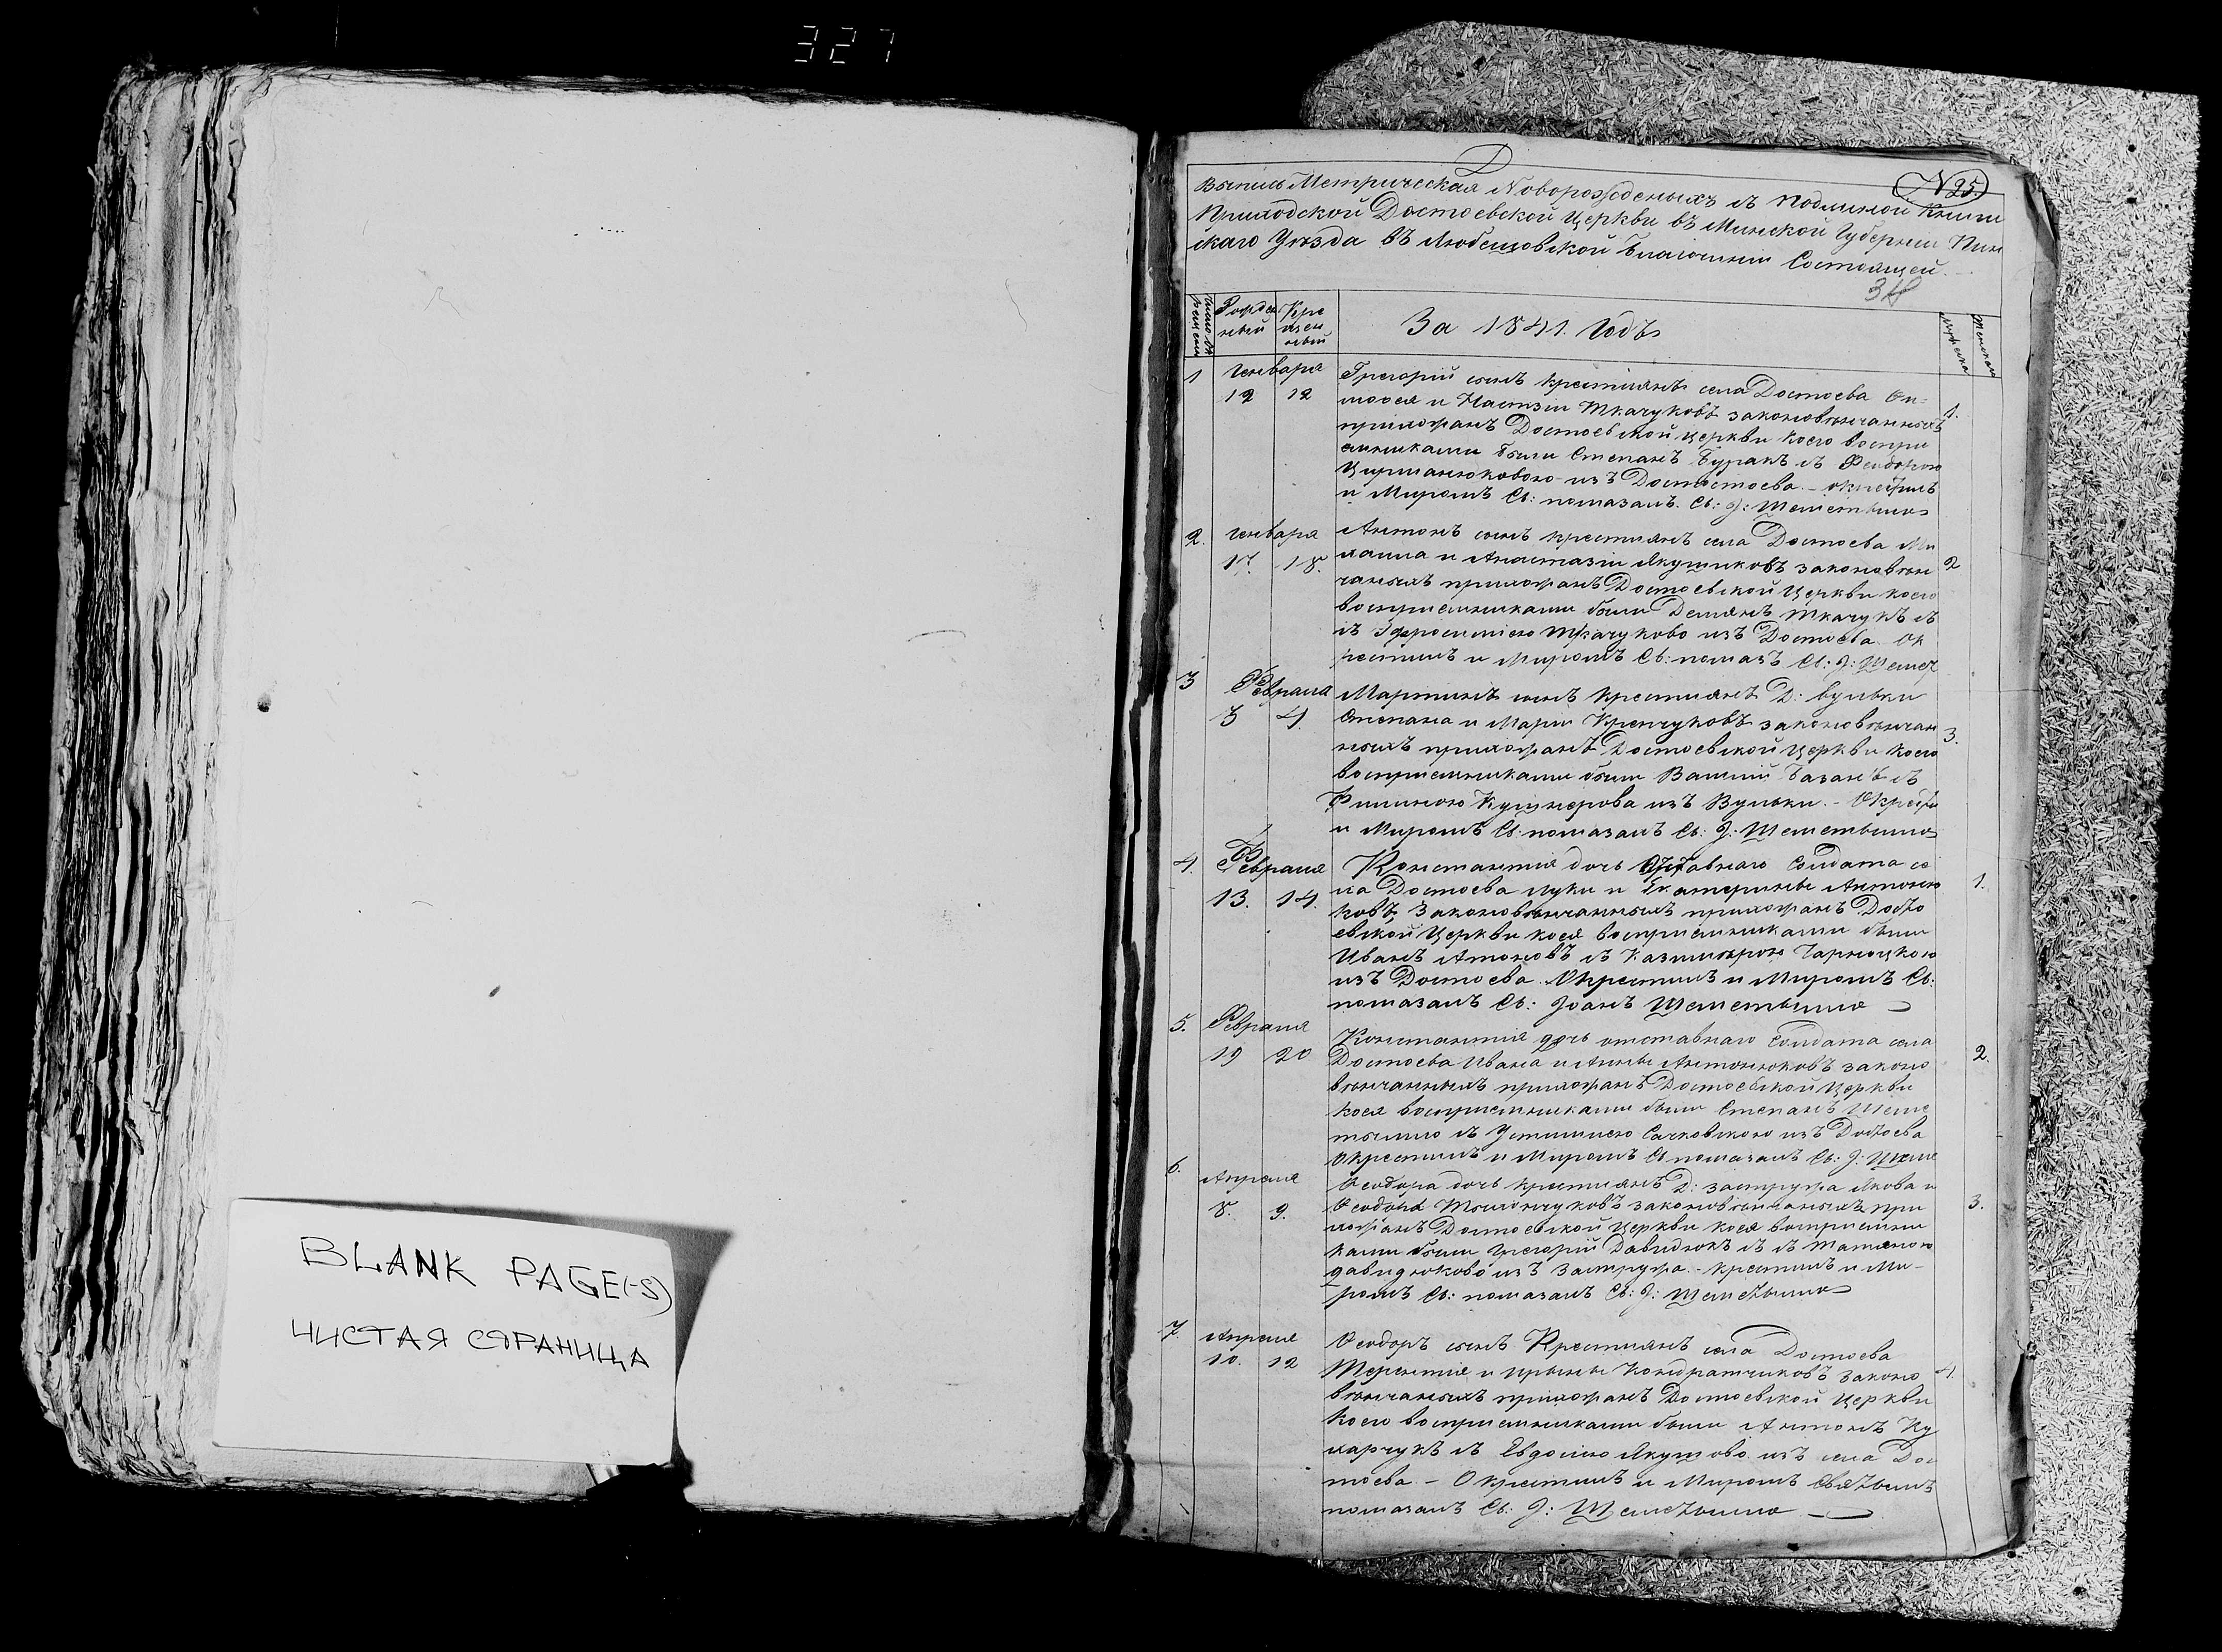 327
BLANK PAGE(-S)
ЧИСТАЯ СТРАНИЦА
N 25.
Выпись Метрическая Новорожденыхъ съ Подлиной Книги
Приходской Достоевской Церкви въ Минской Губерніи Пин
скаго Уезда въ Любешовской Благочиніи Состоящей.
Рожде
ній
Кре
щен
ній
За 1841. Годъ
1
Генваря
12 12
Григорій сынъ крестіянъ села Достоева Он=
и Настазіи Ткачуковъ законовѣнчанныхъ
1.
прихожанъ Достоевской церкви коего воспри
емниками были Степанъ Буракъ съ Феодорою
изъ Достоева. - окрестилъ
и Миромъ Св: помазалъ Св: I: Шеметылло
2.
Генваря
17. 18.
Антонъ сынъ крестіянъ села Достоева Ми
хаила и Анастазіи Якушиковъ законовѣн
2
чаныхъ прихожанъ Достоевской Церкви коего
восприемниками были Демянъ Ткачукъ съ
съ Ткачуково изъ Достоева. Ок
рестилъ и Миромъ Св: помазъ Св: I: Шемет
3
Февраля
3 4.
Мартинъ сынъ Крестіянъ Д: Вульки
Степана и Маріи Кренчуковъ законовѣнчан
3.
ныхъ прихожанъ Достоевской Церкви коего
восприемниками были Василій Базанъ съ
Кушнерова изъ Вульки. - Окрести
и Миромъ Св: помазалъ Св: I: Шеметылло
4.
Февраля
13. 14.
Констанція дочь Отставнаго Солдата се
ла Достоева Луки и Екатерины Антоню
1.
ковъ, Законовѣнчанныхъ прихожанъ Досто
евской Церкви коея восприемниками были
Иванъ Атоновъ съ Казимирою Чарнецкою
изъ Достоева. Окрестилъ и Миромъ Св:
помазалъ Св: Іоанъ Шеметылло
5.
Февраля
19 20
Констанція дочь отставнаго Солдата села
Достоева Ивана и Анны Антонюковъ законо
2.
вѣнчанныхъ прихожанъ Достоевской Церкви
коея восприемниками были Степанъ Шеме
тылло съ Устиниею Сачковскою изъ Достоева
Окрестилъ и Миромъ Св помазалъ Св: I: Шеме
6.
Апреля
8. 9.
Ѳеодора дочь крестіянъ Д: Застружа Якова и
законовѣнчаныхъ при
3.
хожанъ Достоевской Церкви коея восприемни
ками были Григорій Давидюкъ съ съ Татяною
Давидюково изъ Застружа. - Крестилъ и Ми-
ромъ Св: помазалъ Св: I: Шеметылло
7.
Апреля
10. 12
Ѳеодоръ сынъ Крестіянъ села Достоева
Терентія и Ирыны Кондратчиковъ Законо
4.
вѣнчаныхъ прихожанъ Достоевской Церкви
коего восприемниками были Антонъ Ку
харчукъ съ Евдокіею Якушово изъ села Дос
тоева. - Окрестилъ и Миромъ Святымъ
помазалъ Св: I: Шеметылло